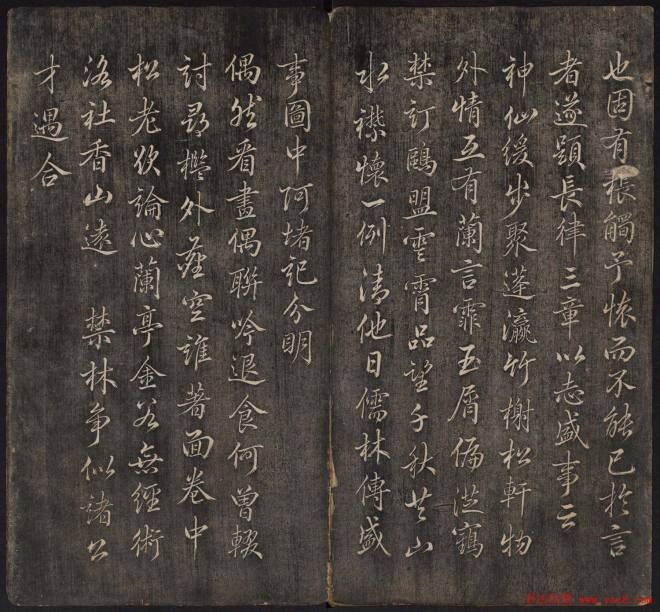 也固有棖觸予懷而不能已於言
者遂題長律三章以志盛事云
神仙緩步聚蓬瀛竹榭松軒物
外情互有蘭言霏玉屑偏從鵷
禁訂鷗盟雲霄品望千秋共山
水襟懷一例清他日儒林傳盛
事圖中阿堵記分明
偶然看畫偶聯吟退食何曾輟
討尋檻外空誰著面卷中
松老欲論心蘭亭金谷無經術
洛社香山遠 禁林爭似諸公
才遇合